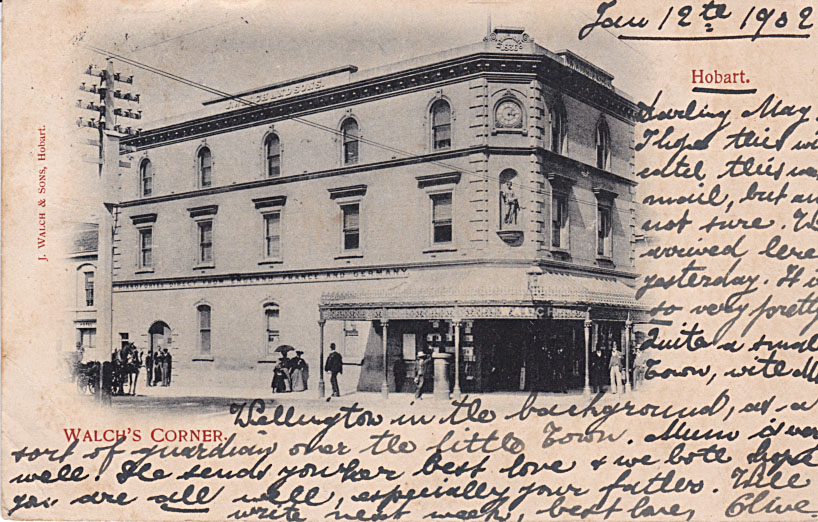 Jan 12te 1902
Hobart.
Darling May,
I hope this wi
catch this wa
mail, but am
not sure. We
arrived here
yesterday. It i
so very pretty
Quite a small
Town, with M
Wellington in the background, as a
sort of guardian over the little Town. Mum is very
well. She sends you her best love & we both hope
you are all well, especially your father. Will
write next week, best love, Olive.
J. WALCH & SONS, Hobart.
WALCH'S CORNER.
J. WALCH AND SONS.
FRANCE AND GERMANY